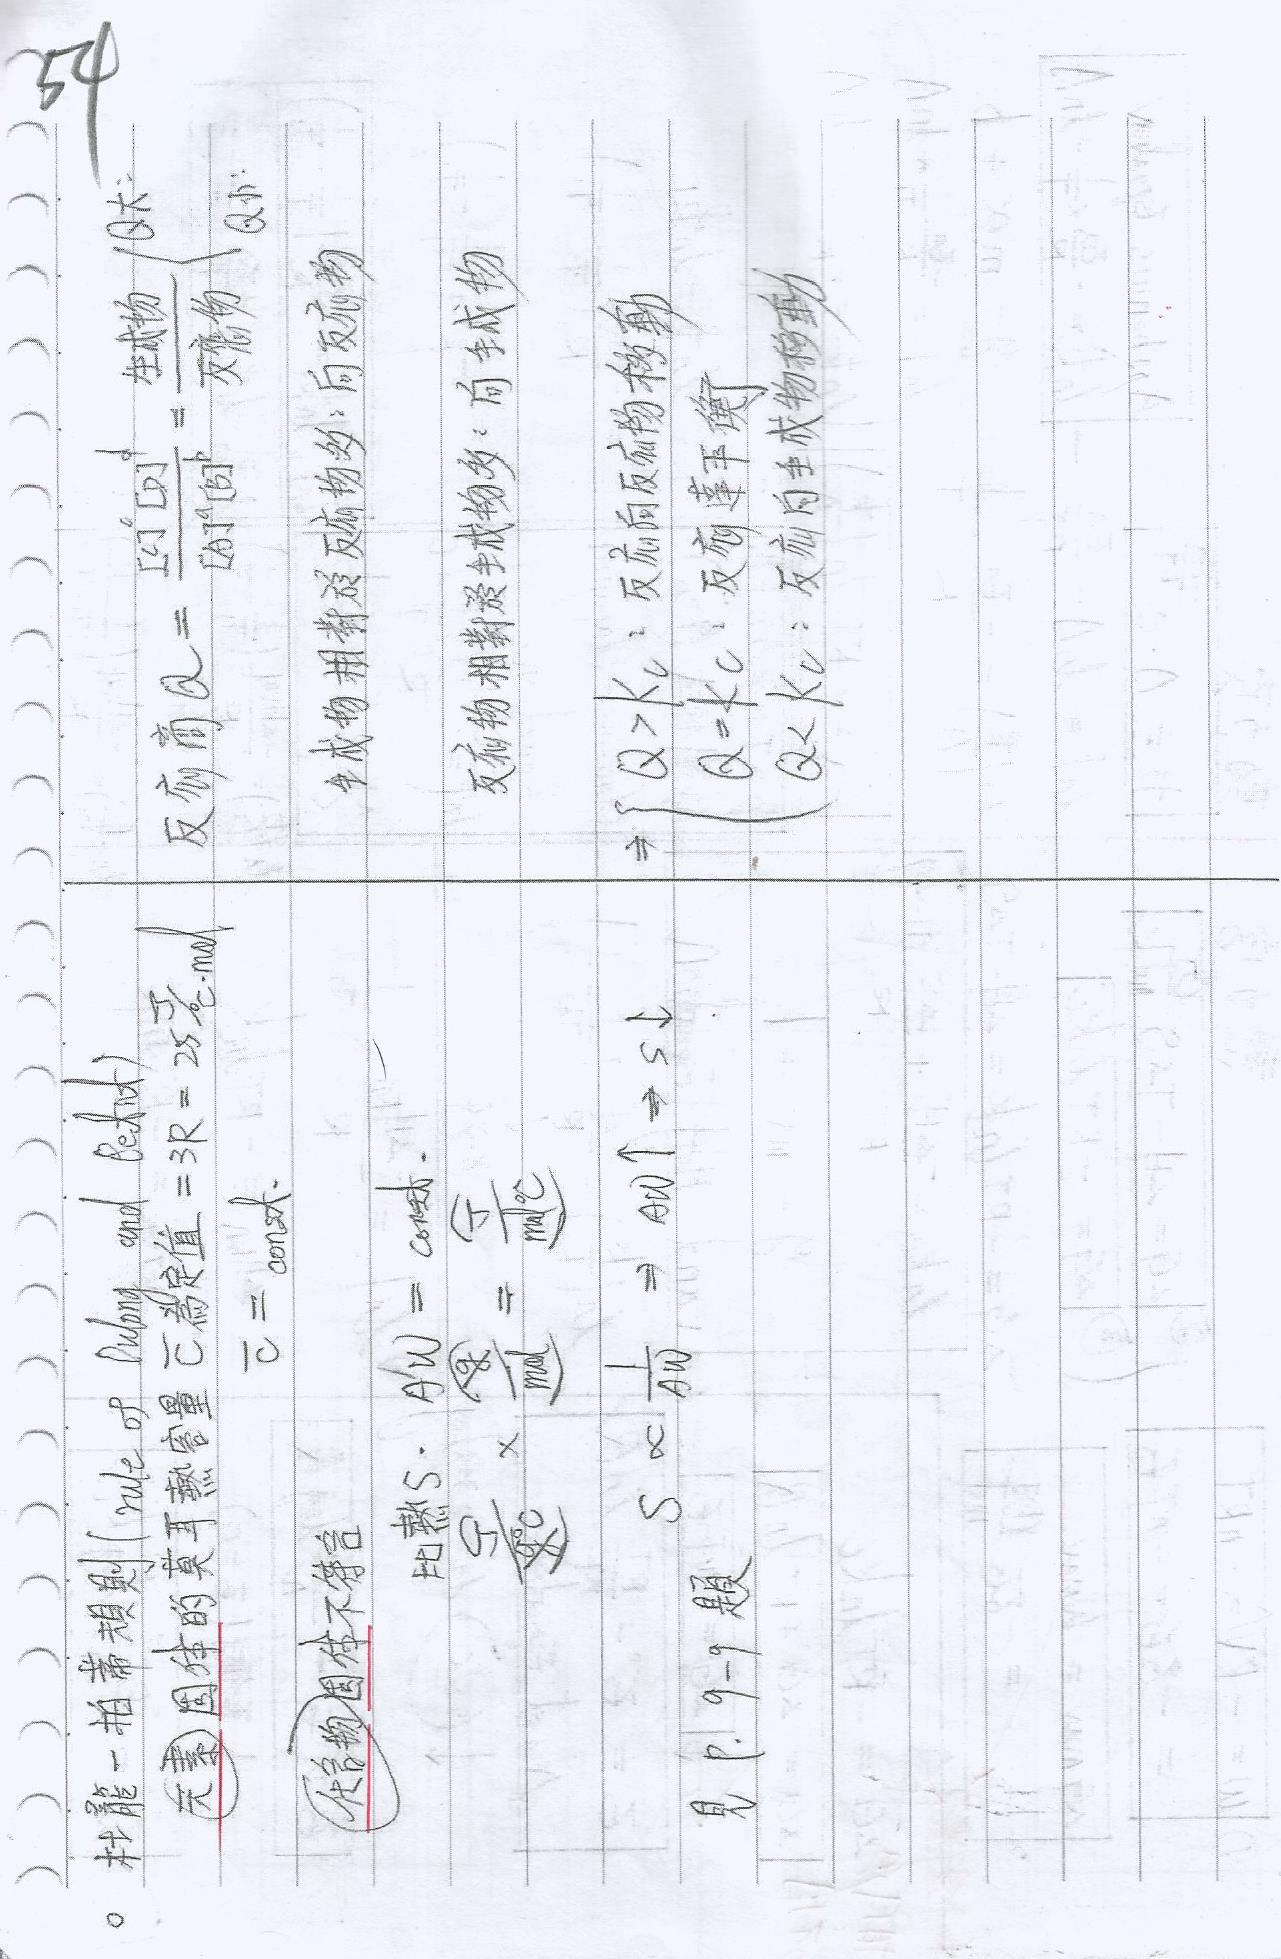 54
杜龍-拍蒂規則(rule of Dulong and Petit)
元素固体的莫耳熱容量 C̄ 為定值 = 3R = 25 J/°C·mol
C̄ = const.
化合物固体不符合
比熱S · AW = const.
J/g°C × g/mol = J/mol°C
S ∝ 1/AW ⇒ AW↑ ⇒ S↓
見 P. 9-9 題
反应商 Q = [C]^c [D]^d / [A]^a [B]^b = 生成物 / 反應物 { Q大:
Q小:
生成物相對於反应物多:向反应物
反应物相對於生成物多:向生成物
⇒ { Q > Kc : 反应向反应物移動
Q = Kc : 反应達平衡
Q < Kc : 反应向生成物移動